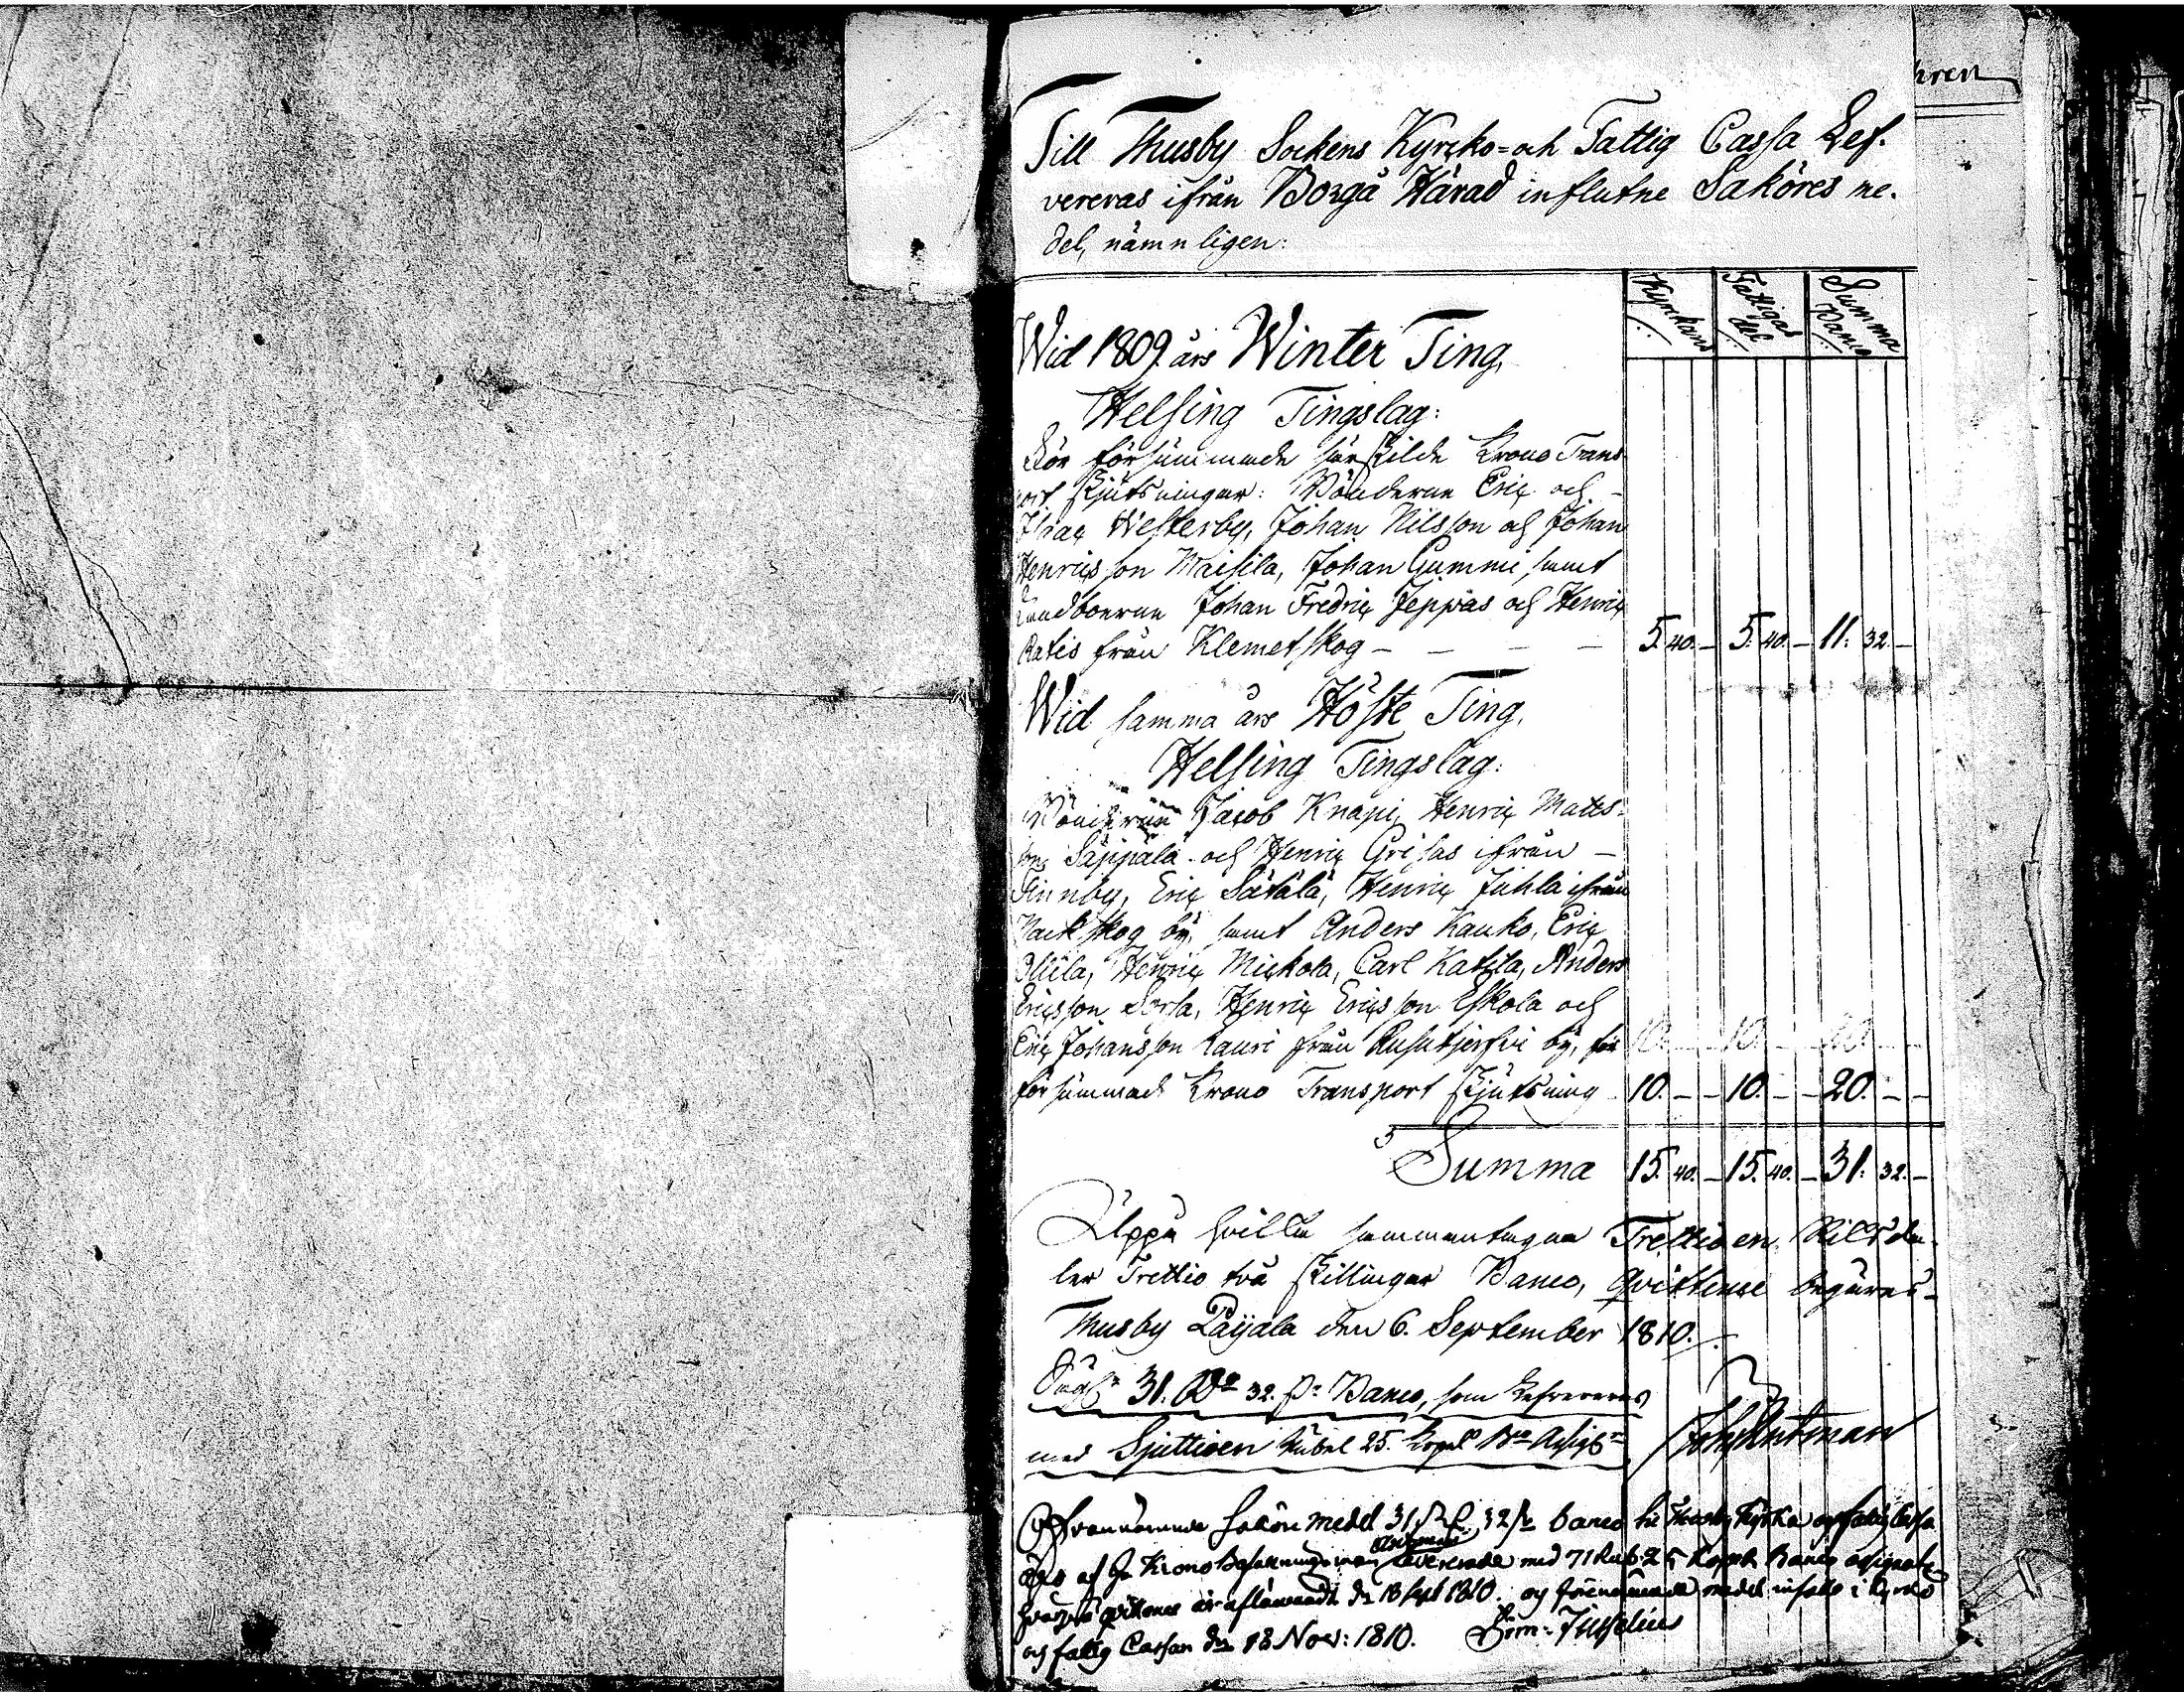 hren
Till Thusby Sockens Kyrcko= och Fattig Cassa Lef-
vereras ifrån Borgå Härad influtne Saköres me-
del, nämnligen:
Kyrckans
Fattigas del
Summa Banco
Wid 1809 års Winter Ting,
Helsing Tingslag:
För försummade särskilde Krono Trans-
port skjutsningar: Bönderne Eric och
Isaac Westerby, Johan Nilsson och Johan
Henricsson Maisila, Johan Gummi, samt
Landboerne Johan Fredric Jeppas och Henric
Ratis från Klemetskog – – – – 5. 40. – 5. 40. – 11. 32. –
Wid samma års Höste Ting,
Helsing Tingslag:
Bönderne Jacob Knapi, Henric Matts-
son Säppälä och Henric Grisas ifrån –
Finnby, Eric Sätälä, Henric Juhla ifrån
Nackskog by, samt Anders Kauko, Eric
Ollila, Henric Mickola, Carl Katila, Anders
Ericsson Sorsa, Henric Ericsson Eskola och
Eric Johansson Lauri från Rusutjerfvi by, för 10. – – 10. – – 20. – –
försummad Krono Transport skjutsning 10. – – 10. – – 20. – –
Summa 15. 40. – 15. 40. – 31. 32. –
Uppå hvilka sammantagne Trettioen Riksda-
ler Trettio två skillingar Banco, qvittence begäres.
Thusby Päijälä den 6. September 1810.
31. Rd 32. s. Banco, som lefvereras
med Sjuttioen Rubel 25. Kopek Bco Assigr
Joh Antman
Ofvannämnde saköre medel 31 Rd. 32 s. banco til Thusby Kyrka och fattig Cassa
af Kronobefallningsman Antman levererade med 71 Rub. 25 Kopek Banco assignat
qvittence är aflämnadt d. 13 Sept 1810. och förenämnde medel infalt i Kyrko
och fattig Cassan d. 18 Nov: 1810.